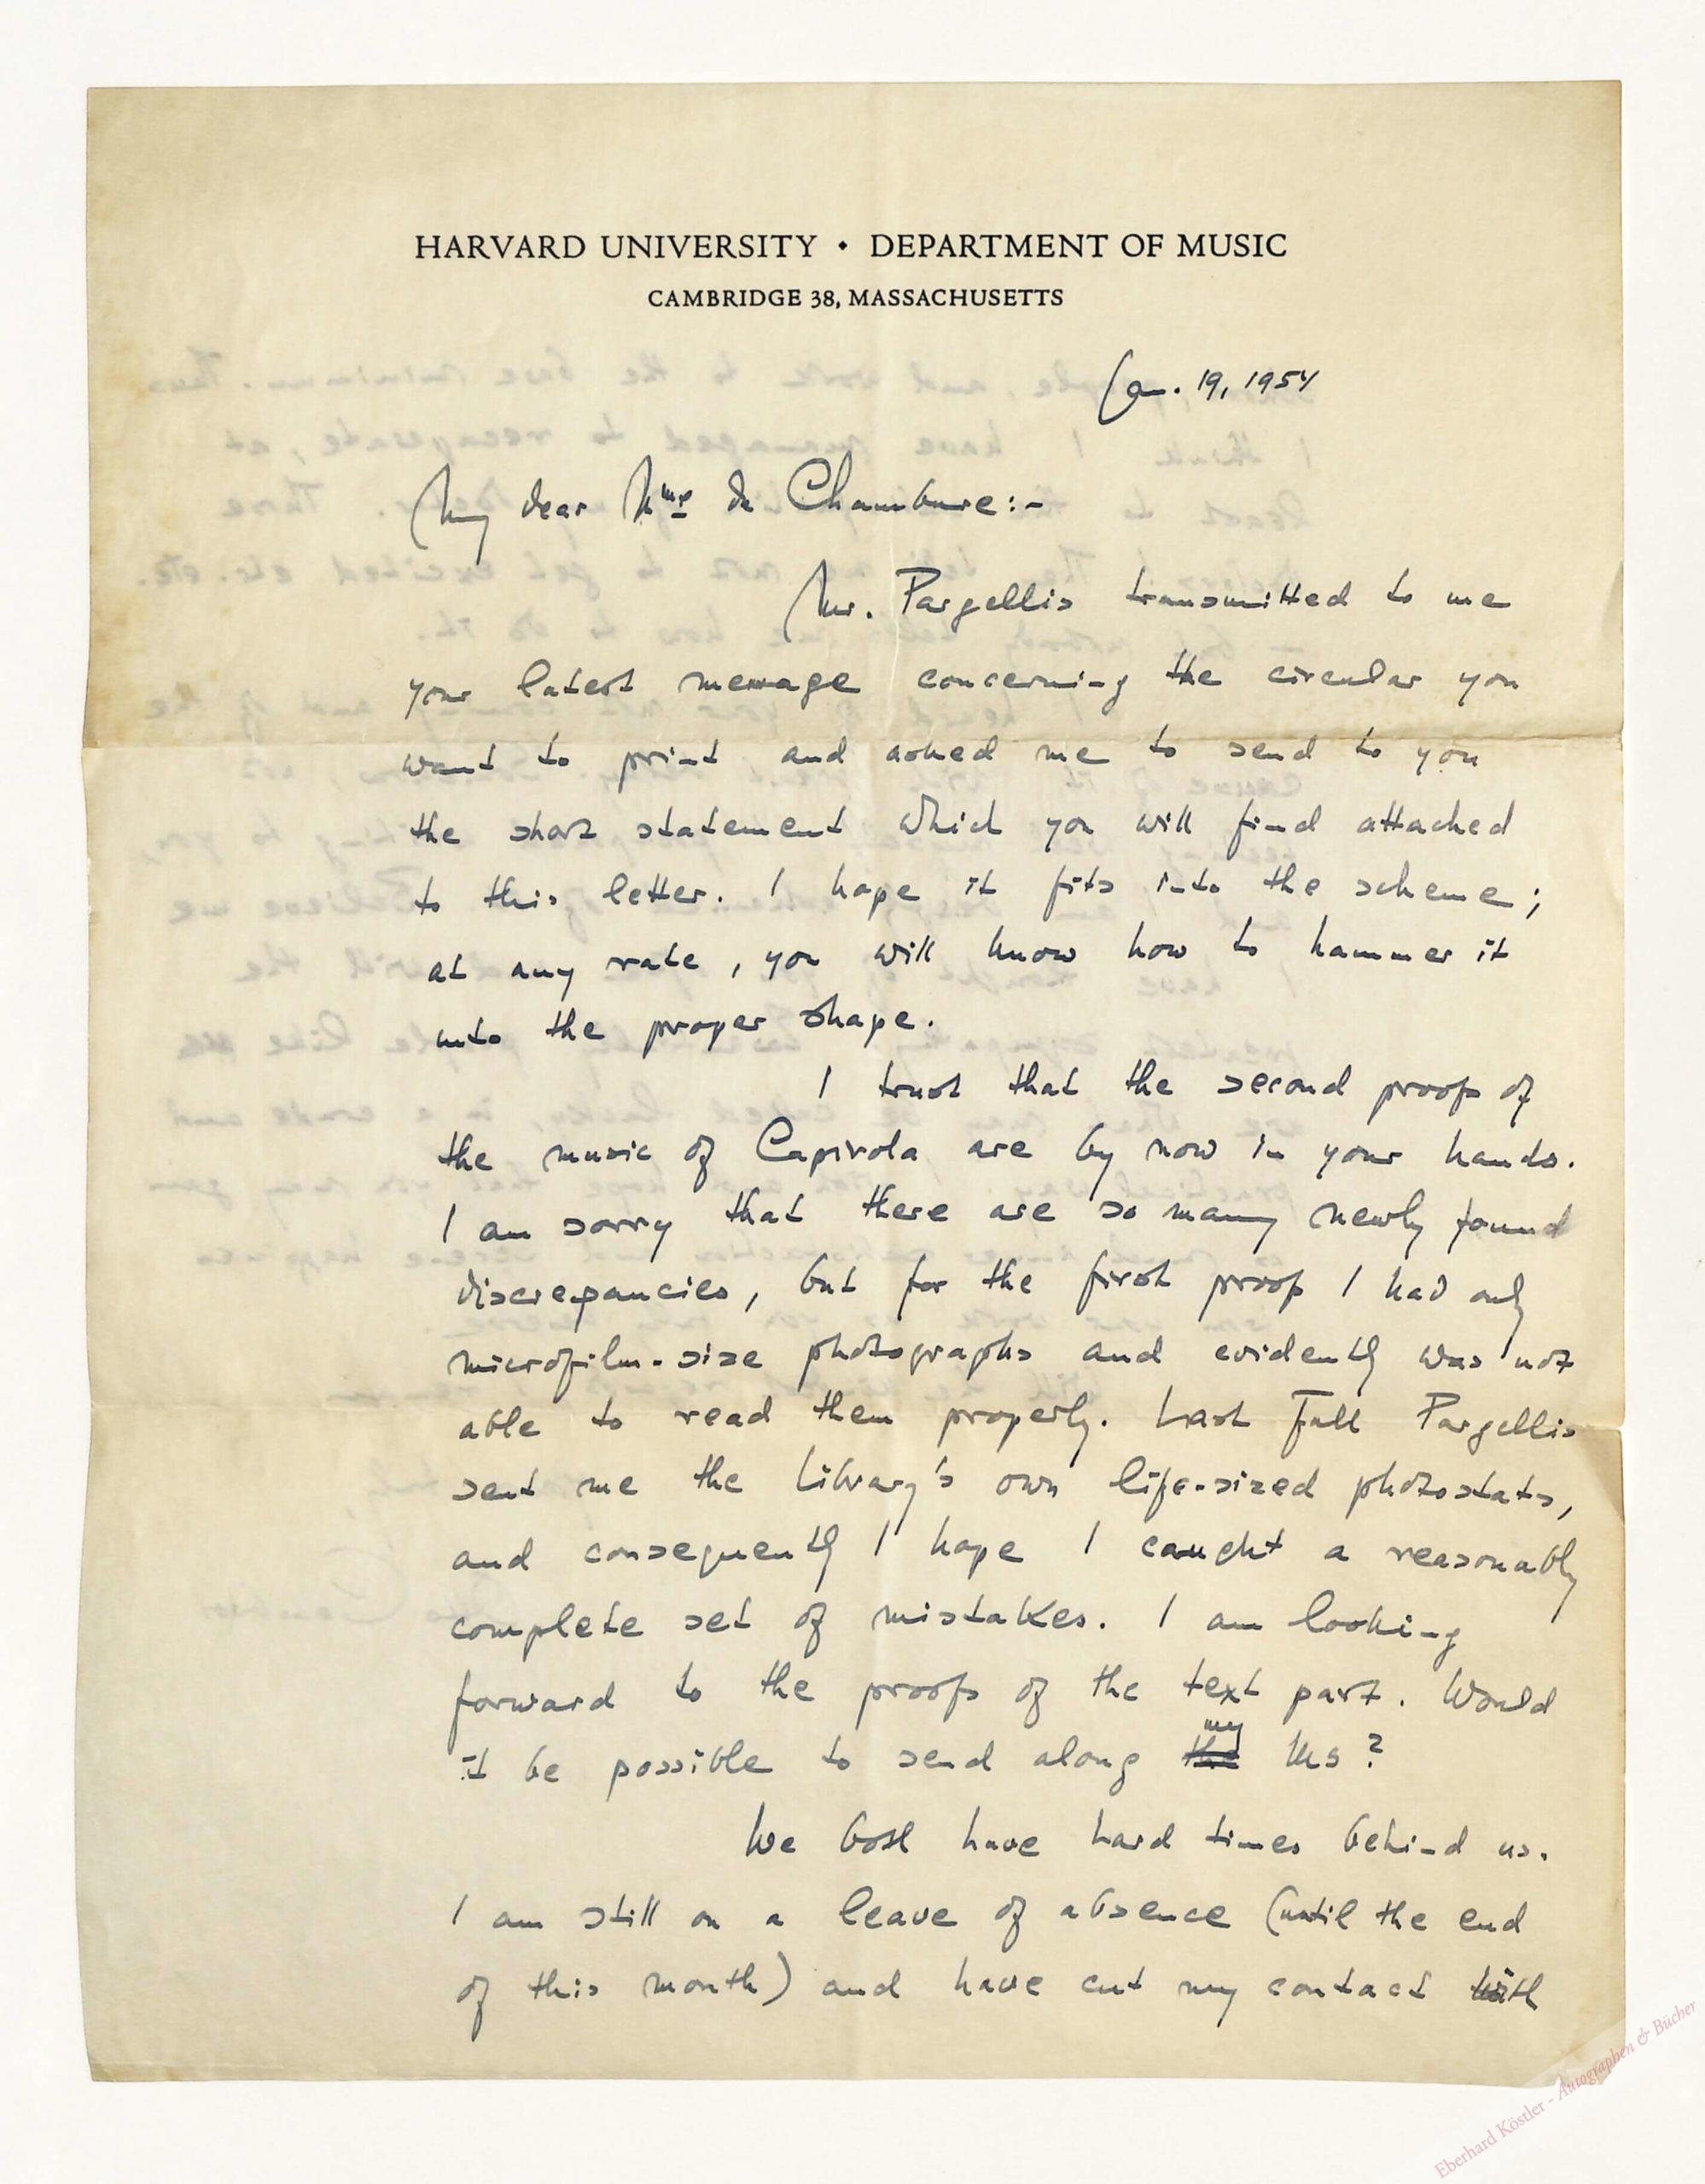 HARVARD UNIVERSITY • DEPARTMENT OF MUSIC
CAMBRIDGE 38, MASSACHUSETTS
Jan. 19, 1954
My dear Mme de Chambure:-
Mr. Pargellis transmitted to me
your latest message concerning the circular you
want to print and asked me to send to you
the short statement which you will find attached
to this letter. I hope it fits into the scheme;
at any rate, you will know how to hammer it
into the proper shape.
I trust that the second proofs of
the music of Capirola are by now in your hands.
I am sorry that there are so many newly found
discrepancies, but for the first proof I had only
microfilm-size photographs and evidently was not
able to read them properly. Last Fall Pargellis
sent me the Library's own life-sized photostats,
and consequently I hope I caught a reasonably
complete set of mistakes. I am looking
forward to the proofs of the text part. Would
it be possible to send along the my Ms?
We both have hard times behind us.
I am still on a leave of absence (until the end
of this month) and have cut my contact with
Eberhard Köstler - Autographen & Bücher